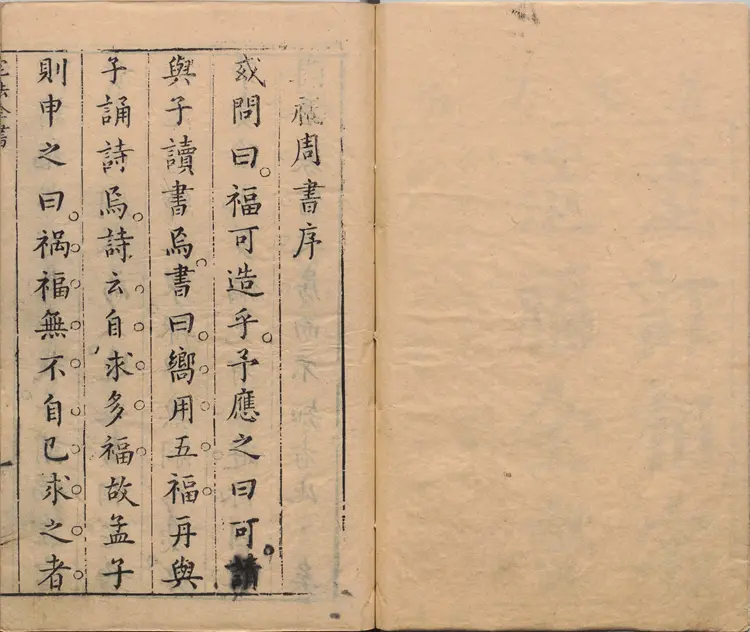 周書序
或問曰福可造乎予應之曰可請
與子讀書焉書曰嚮用五福再與
子誦詩焉詩云自求多福故孟子
則申之曰禍福無不自己求之者
全書